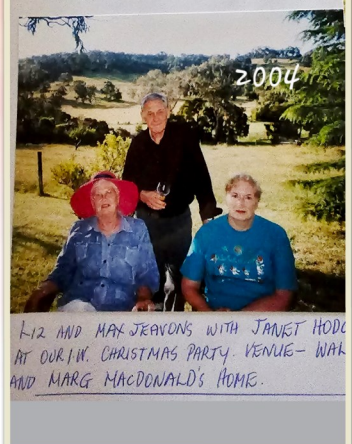 2004
LIZ AND MAX JEAVONS WITH JANET
AT OUR I.W. CHRISTMAS PARTY. VENUE-
AND MARG MACDONALD'S HOME.